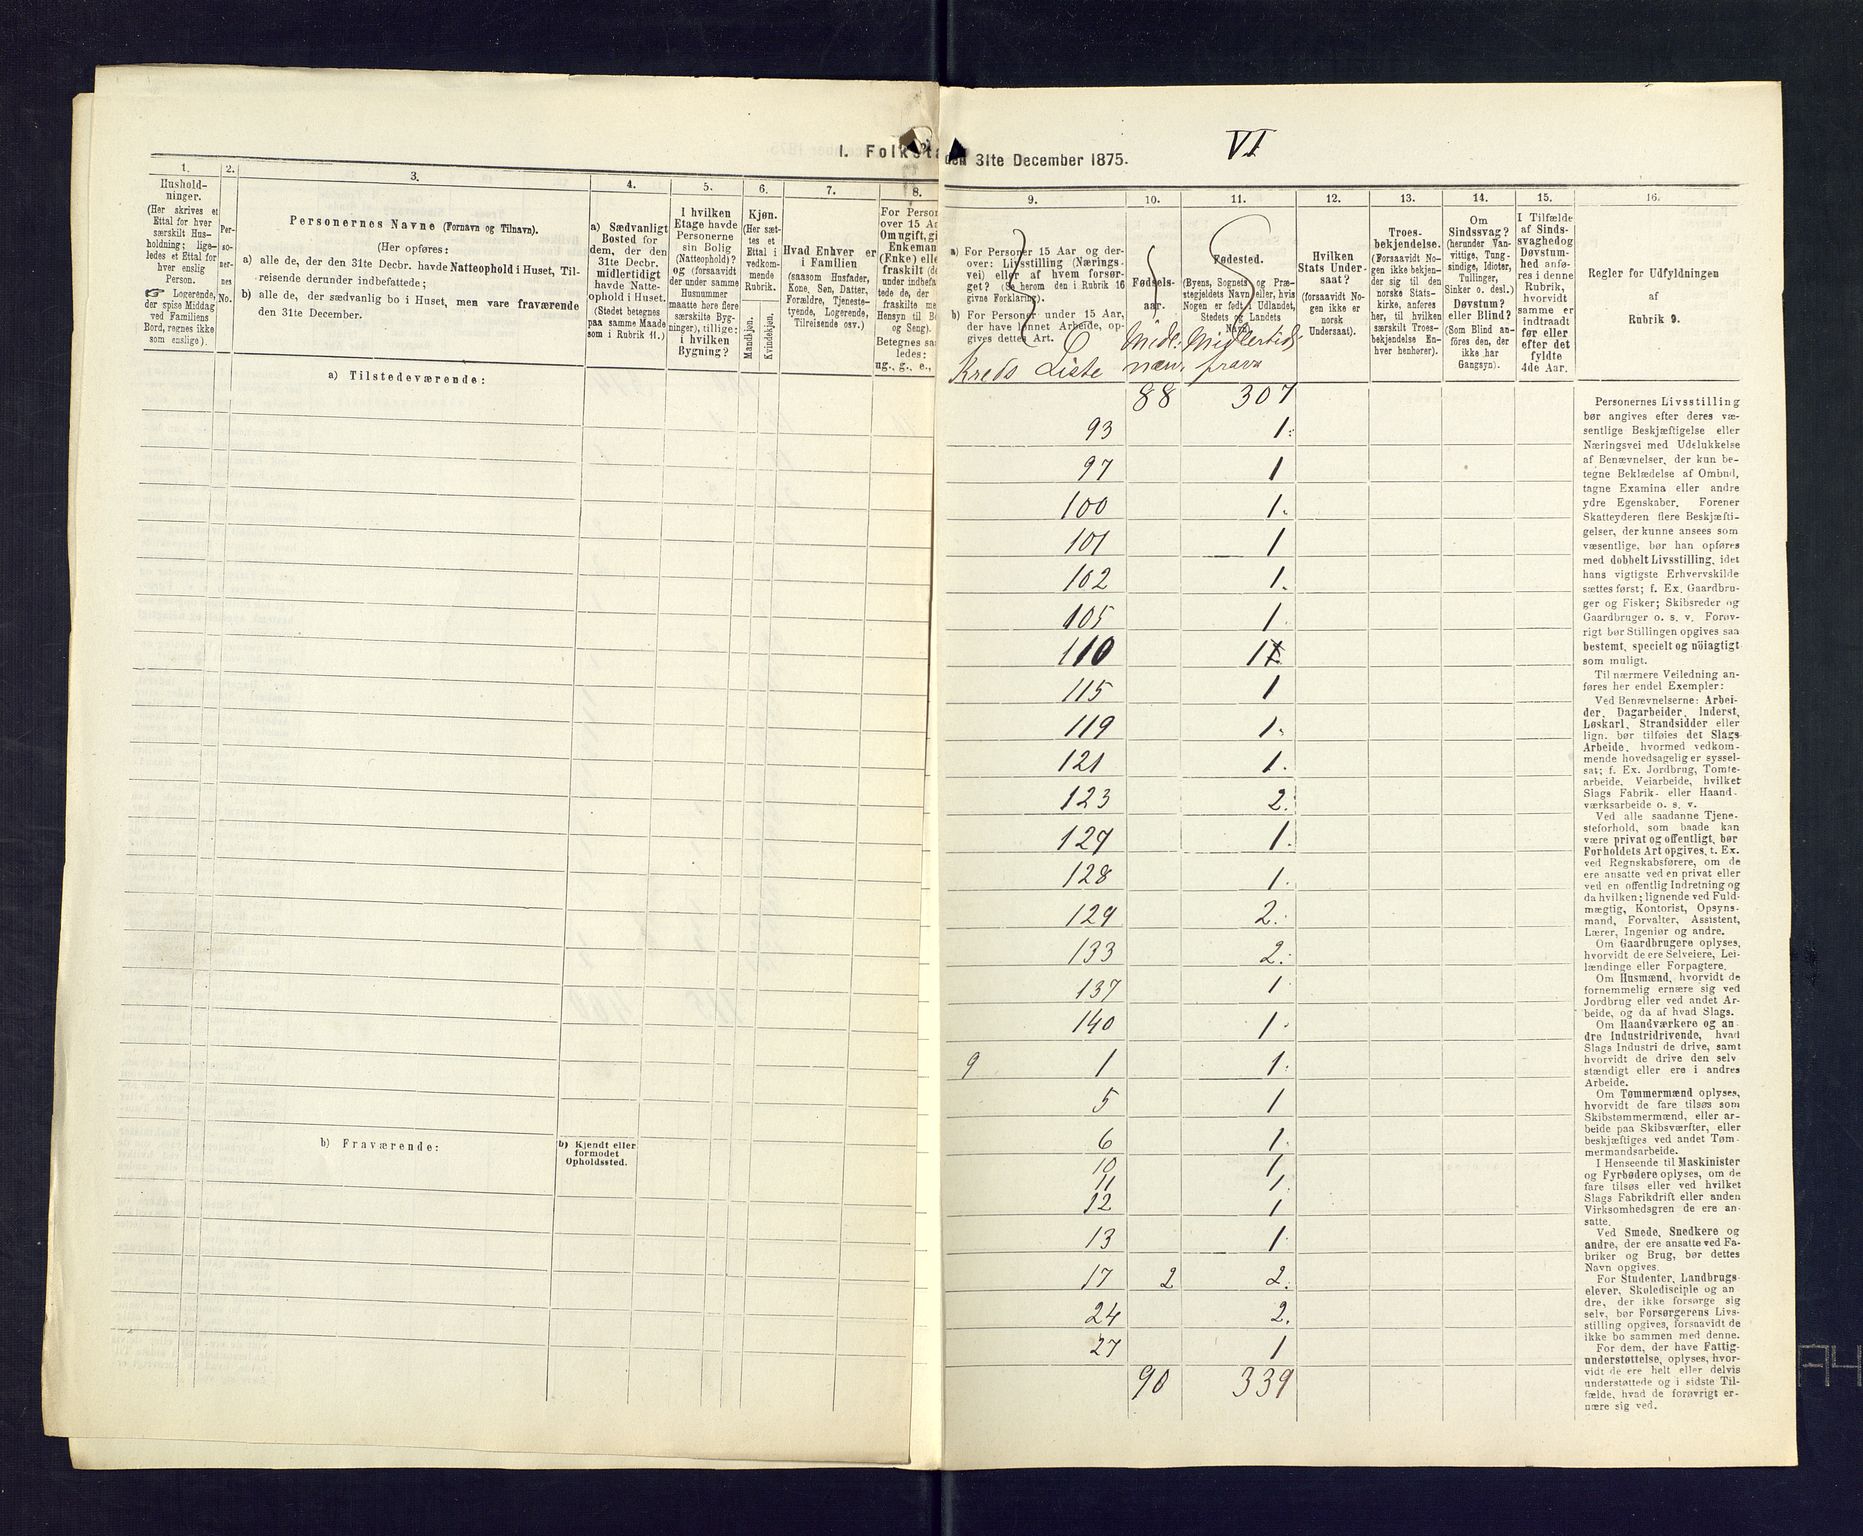 I. Folketa
den 31te December 1875.
VI
1.
2.
3.
4.
5.
6.
7.
8.
9.
10.
11.
12.
13.
14.
15.
16.
Hushold-
ninger.
(Her skrives et
Ettal for hver
særskilt Hus-
holdning; lige-
ledes et Ettal for
hver enslig
Person.
☞ Logerende,
der spise Middag
ved Familiens
Bord, regnes ikke
som enslige).
Per-
so-
ner-
nes
No.
Personernes Navne (Fornavn og Tilnavn).
(Her opføres:
a) alle de, der den 31te Decbr. havde Natteophold i Huset, Til-
reisende derunder indbefattede;
b) alle de, der sædvanlig bo i Huset, men vare fraværende
den 31te December.
a) Sædvanligt
Bosted for
dem, der den
31te Decbr.
midlertidigt
havde Natte-
ophold i Huset.
(Stedet betegnes
paa samme Maade
som i Rubrik 11.)
I hvilken
Etage havde
Personerne
sin Bolig
(Natteophold)?
og (forsaavidt
der under samme
Husnummer
maatte høre flere
særskilte Byg-
ninger), tillige:
i hvilken
Bygning?
Kjøn.
(Her sæt-
tes et
Ettal i
vedkom-
mende
Rubrik.
Mandkjøn.
Kvindekjøn.
Hvad Enhver er
i Familien
(saasom Husfader,
Kone, Søn, Datter,
Forældre, Tjeneste-
tyende, Logerende,
Tilreisende osv.)
For Person
over 15 Aa
Om ugift, gi
Enkeman
(Enke) elle
fraskilt (de
under indbefa
tede de, der
fraskilte me
Hensyn til Bo
og Seng).
Betegnes saa
ledes:
ug., g., e.,
a) For Personer 15 Aar og der-
over: Livsstilling (Nærings-
vei) eller af hvem forsør-
get? (Se herom den i Rubrik 16
givne Forklaring).
b) For Personer under 15 Aar,
der have lønnet Arbeide, op-
gives dettes Art.
Fødsels-
aar.
Fødested.
(Byens, Sognets og Præ-
stegjeldets Navn eller, hvis
Nogen er født i Udlandet,
Stedets og Landets
Navn).
Hvilken
Stats Under-
saat?
(forsaavidt No-
gen ikke er
norsk
Undersaat).
Troes-
bekjendelse.
(Forsaavidt No-
gen ikke bekjen-
der sig til den
norske Stats-
kirke, anføres
her, til hvilken
særskilt Troes-
bekjendelse En-
hver henhører).
Om
Sindssvag?
(herunder Van-
vittige, Tung-
sindige, Idioter,
Tullinger,
Sinker o. desl.)
Døvstum?
eller Blind?
(Som Blind an-
føres den, der
ikke har
Gangsyn).
I Tilfælde
af Sinds-
svaghedog
Døvstum-
hed anfø-
res i denne
Rubrik,
hvorvidt
samme er
indtraadt
før eller
efter det
fyldte
4de Aar.
Regler for Udfyldningen
af
Rubrik 9.
Kreds Liste
Midl: nærv.
Midlertids frava
a) Tilstedeværende:
88 307
93 1.
97 1
100 1.
101 1
102 1.
105 1.
110 1
115 1
119 1.
121 1.
123 2.
127 1.
128 1.
129 2.
133 2.
137 1
140 1.
9 1 1.
5 1
6 1.
10 1
11 1.
12 1
13 1.
17 2 2.
24 2.
27 1
90 339
b) Fraværende:
b) Kjendt eller
formodet
Opholdssted.
Personernes Livsstilling
bør angives efter deres væ-
sentlige Beskjæftigelse eller
Næringsvei med Udelukkelse
af Benævnelser, der kun be-
tegne Beklædelse af Ombud,
tagne Examina eller andre
ydre Egenskaber. Forener
Skatteyderen flere Beskjæfti-
gelser, der kunne ansees som
væsentlige, bør han opføres
med dobbelt Livsstilling, idet
hans vigtigste Erhvervskilde
sættes først; f. Ex. Gaardbru-
ger og Fisker; Skibsreder og
Gaardbruger o. s. v. Forøv-
rigt bør Stillingen opgives saa
bestemt, specielt og nöiagtigt
som muligt.
Til nærmere Veiledning an-
føres her endel Exempler:
Ved Benævnelserne: Arbei-
der, Dagarbeider, Inderst,
Løskarl, Strandsidder eller
lign. bør tilføies det Slags
Arbeide, hvormed vedkom-
mende hovedsagelig er syssel-
sat; f. Ex. Jordbrug, Tomte-
arbeide, Veiarbeide, hvilket
Slags Fabrik- eller Haand-
værksarbeide o. s. v.
Ved alle saadanne Tjene-
steforhold, som baade kan
være privat og offentligt, bør
Forholdets Art opgives, t. Ex.
ved Regnskabsførere, om de
ere ansatte ved en privat eller
ved en offentlig Indretning og
da hvilken; lignende ved Fuld-
mægtig, Kontorist, Opsyns-
mand, Forvalter, Assistent,
Lærer, Ingeniør og andre.
Om Gaardbrugere oplyses,
hvorvidt de ere Selveiere, Lei-
lændinge eller Forpagtere.
Om Husmænd, hvorvidt de
fornemmelig ernære sig ved
Jordbrug eller ved andet Ar-
beide, og da af hvad Slags.
Om Haandværkere og an-
dre Industridrivende, hvad
Slags Industri de drive, samt
hvorvidt de drive den selv
stændigt eller ere i andres
Arbeide.
Om Tømmermænd oplyses,
hvorvidt de fare tilsøs som
Skibstømmermænd, eller ar-
beide paa Skibsværfter, eller
beskjæftiges ved andet Tøm-
mermandsarbeide.
I Henseende til Maskinister
og Fyrbødere oplyses, om de
fare tilsøs eller ved hvilket
Slags Fabrikdrift eller anden
Virksomhedsgren de ere an-
satte.
Ved Smede, Snedkere og
andre, der ere ansatte ved Fa-
briker og Brug, bør dettes
Navn opgives.
For Studenter, Landbrugs-
elever, Skoledisciple og an-
dre, der ikke forsørge sig
selv, bør Forsørgerens Livs-
stilling opgives, forsaavidt de
ikke bo sammen med denne.
For dem, der have Fattig-
understøttelse, oplyses, hvor-
vidt de ere helt eller delvis
understøttede og i sidste Til-
fælde, hvad de forøvrigt er-
nære sig ved.